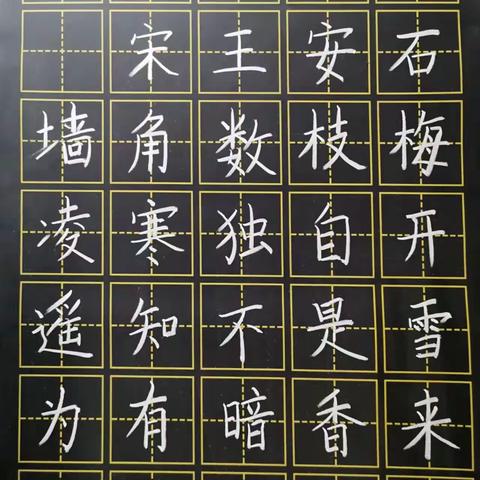 宋王安石
墙角数枝梅
凌寒独自开
遥知不是雪
为有暗香来